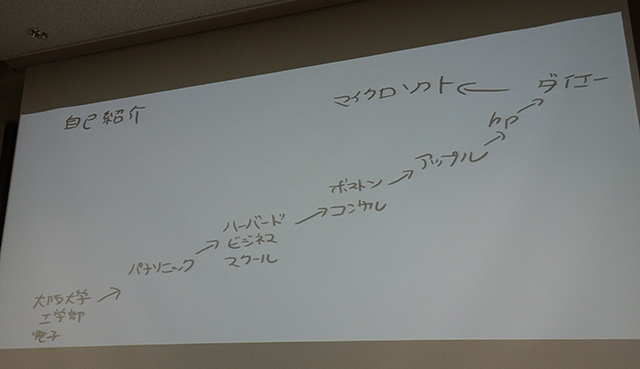 自己紹介
大阪大学
工学部
電子
パナソニック
ハーバード
ビジネス
スクール
ボストン
コンサル
アップル
hp
ダイエー
マイクロソフト